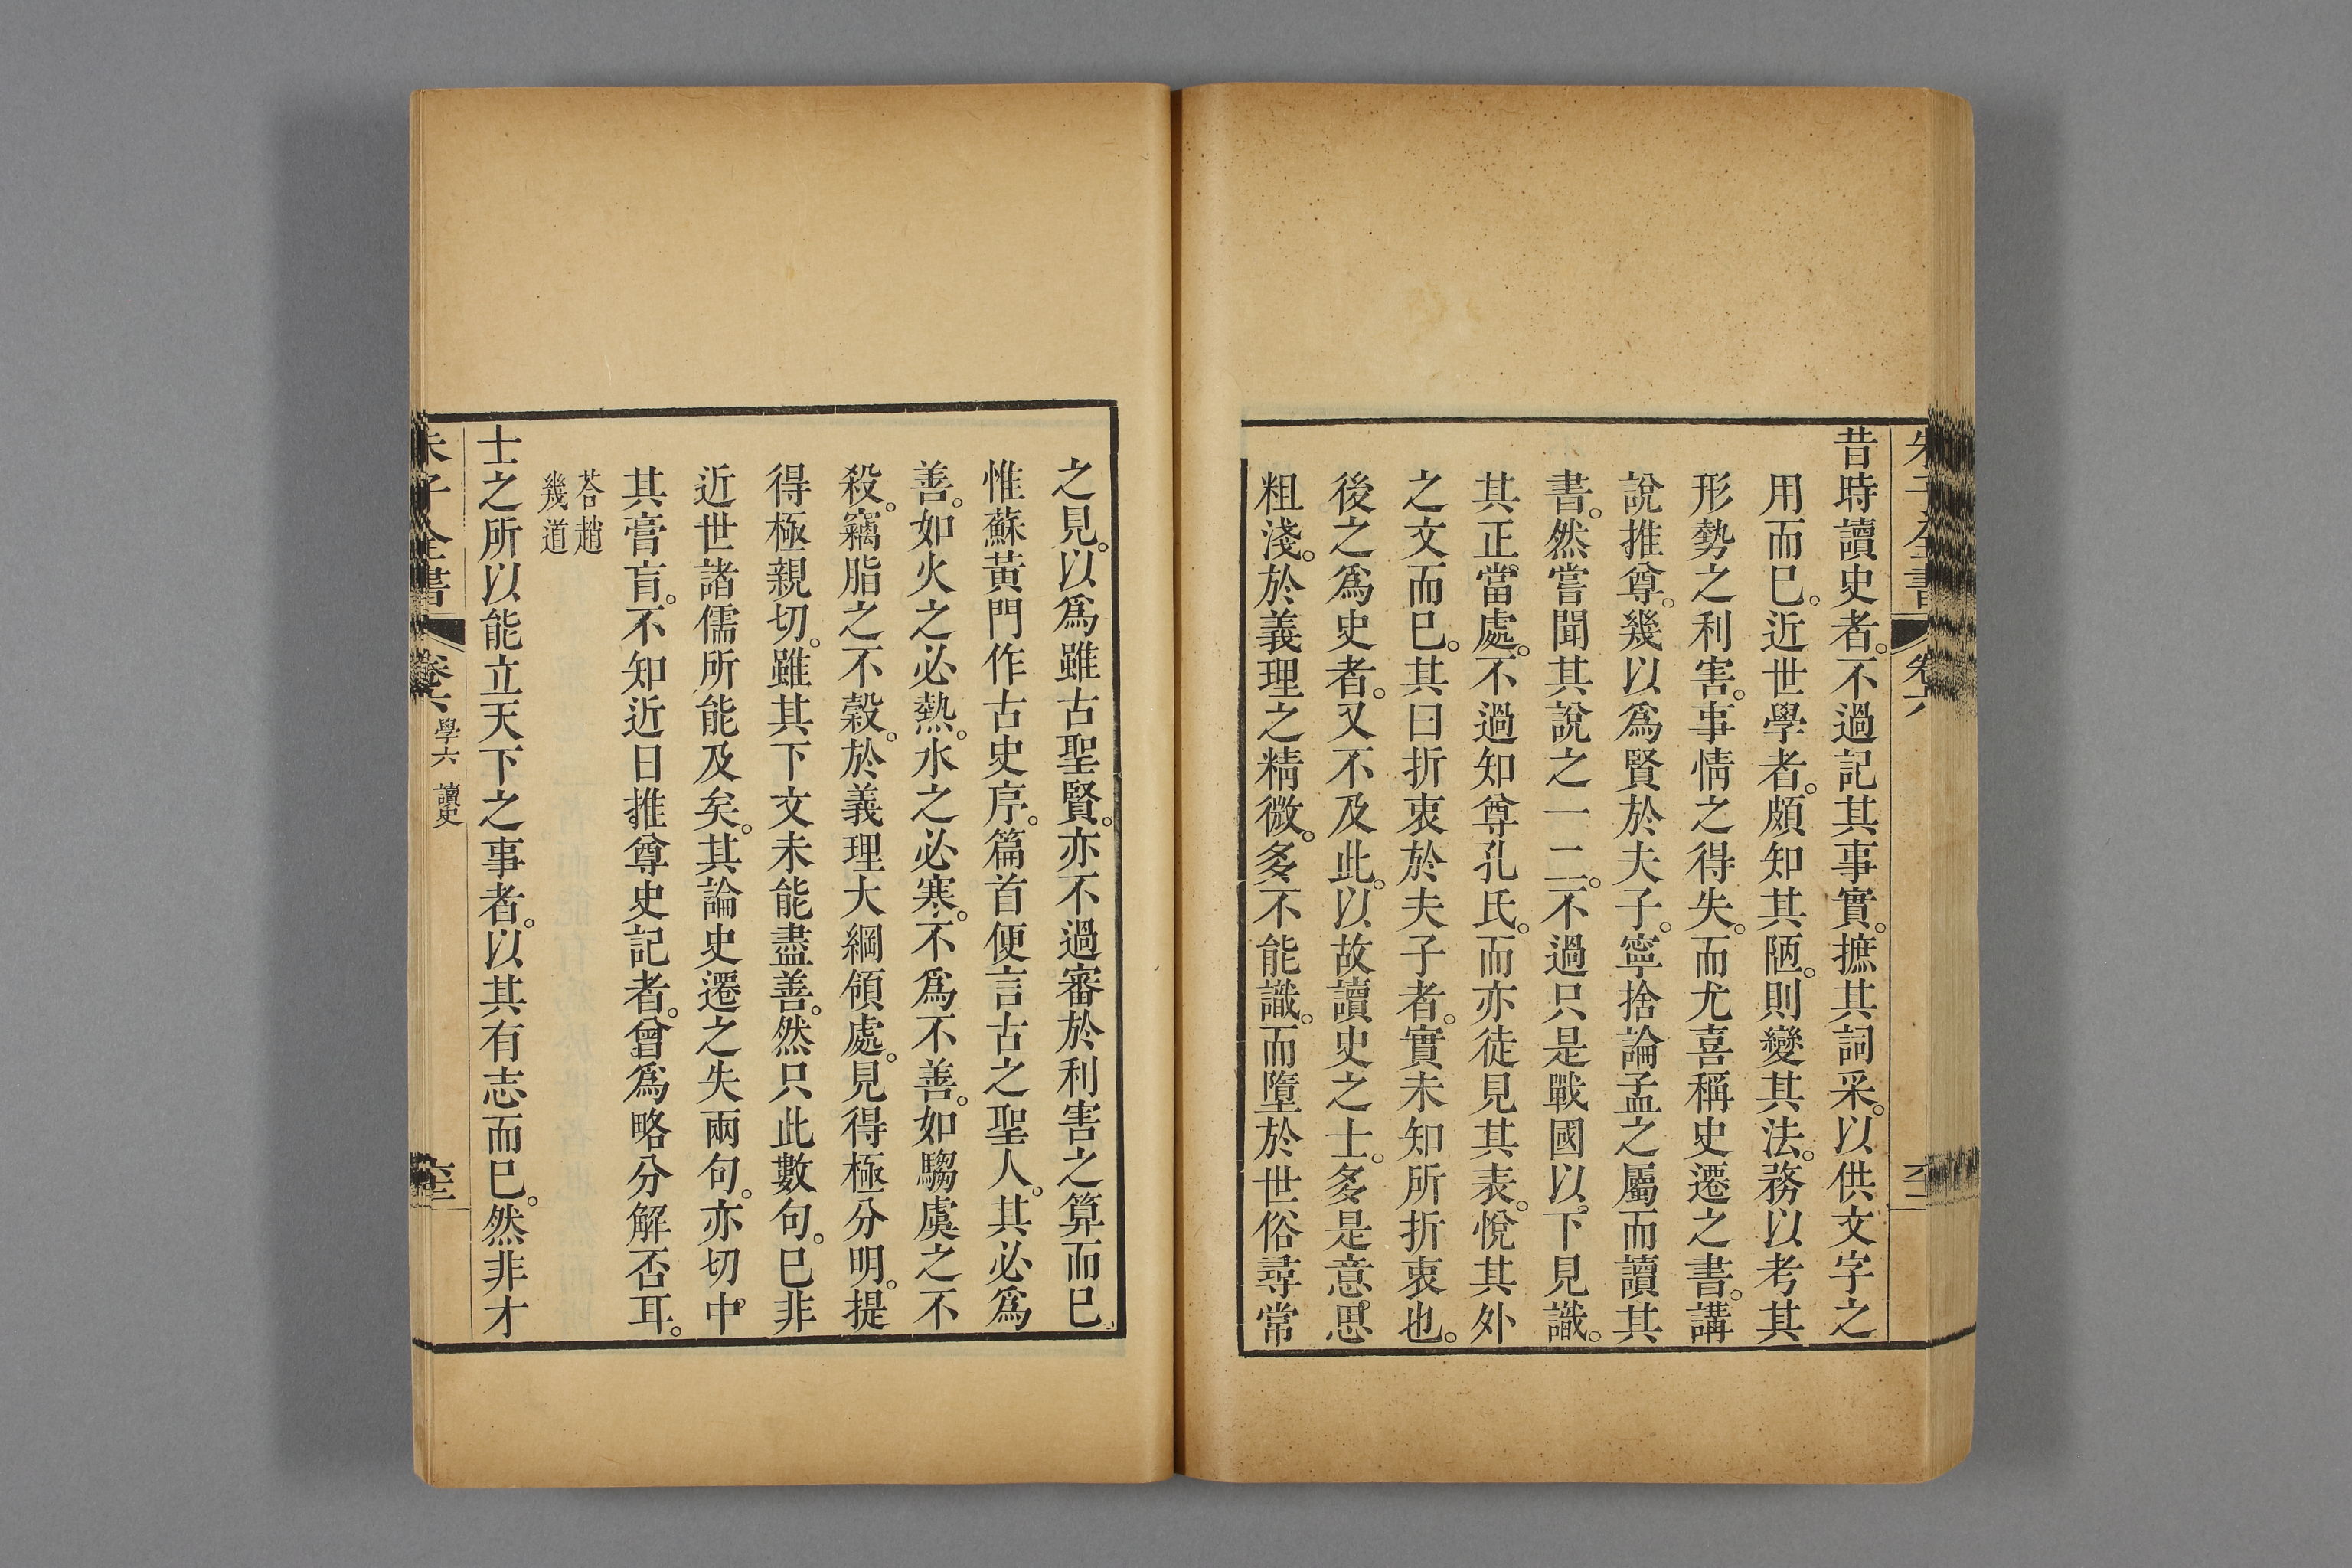 昔時讀史者。不過記其事實。摭其詞采。以供文字之
用而巳。近世學者。頗知其陋。則變其法。務以考其
形勢之利害。事情之得失。而尤喜稱史遷之書。講
說推尊。幾以爲賢於夫子。寧捨論孟之屬而讀其
書。然嘗聞其說之一二。不過只是戰國以下見識。
其正當處。不過知尊孔氏。而亦徒見其表。悅其外
之文而巳。其曰折衷於夫子者。實未知所折衷也。
後之爲史者。又不及此。以故讀史之士。多是意思
粗淺。於義理之精微。多不能識。而墮於世俗尋常
之見。以爲雖古聖賢。亦不過審於利害之算而巳。
惟蘇黃門作古史序。篇首便言古之聖人。其必爲
善。如火之必熱。水之必寒。不爲不善。如騶虞之不
殺。竊脂之不穀。於義理大綱領處。見得極分明。提
得極親切。雖其下文未能盡善。然只此數句。巳非
近世諸儒所能及矣。其論史遷之失兩句。亦切中
其膏盲。不知近日推尊史記者。曾爲略分解否耳。
荅趙
幾道
士之所以能立天下之事者。以其有志而巳。然非才
朱子全書
卷六
學六
讀史